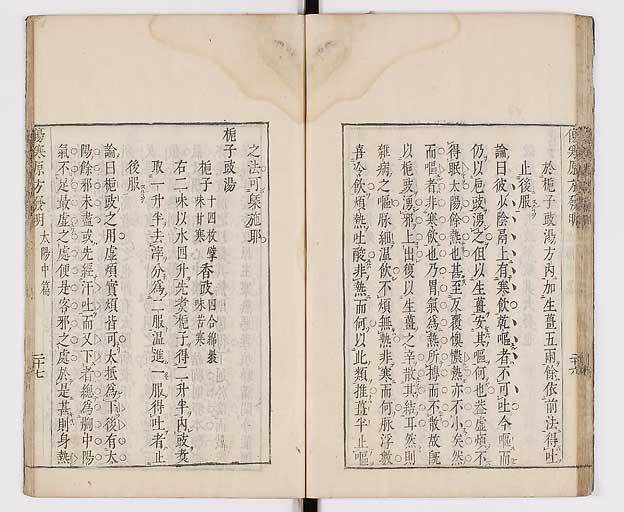 傷寒原方發明
於梔子豉湯方內加生薑五兩餘依前法得吐
止後服
論曰彼少陰膈上有寒飲乾嘔者不可吐今嘔而
仍以梔豉湧之但以生薑安其嘔何也蓋虛煩不
得眠太陽餘熱也甚至反覆懊憹熱亦不小矣然
而嘔者非寒飲也乃胃氣為熱所搏而不散故既
以梔豉湧邪上出復以生薑之辛散其結耳然則
雜病之嘔脉細溫飲不煩無熱非寒而何脉浮數
喜冷飲煩熱吐酸非熱而何以此類推薑半止嘔
二十六
之法可槩施耶
梔子豉湯
梔子十四枚擘味甘寒 香豉四合綿裹味苦寒
右二味以水四升先煑梔子得二升半內豉煑
取一升半去滓分為二服溫進一服得吐者止
後服
論曰梔豉之用虛煩實煩皆可大抵為下後有大
陽餘邪未盡或先經汗吐而又下者總為胸中陽
氣不足最虛之處便是客邪之處於是甚則身熱
傷寒原方發明 太陽中篇 二十七